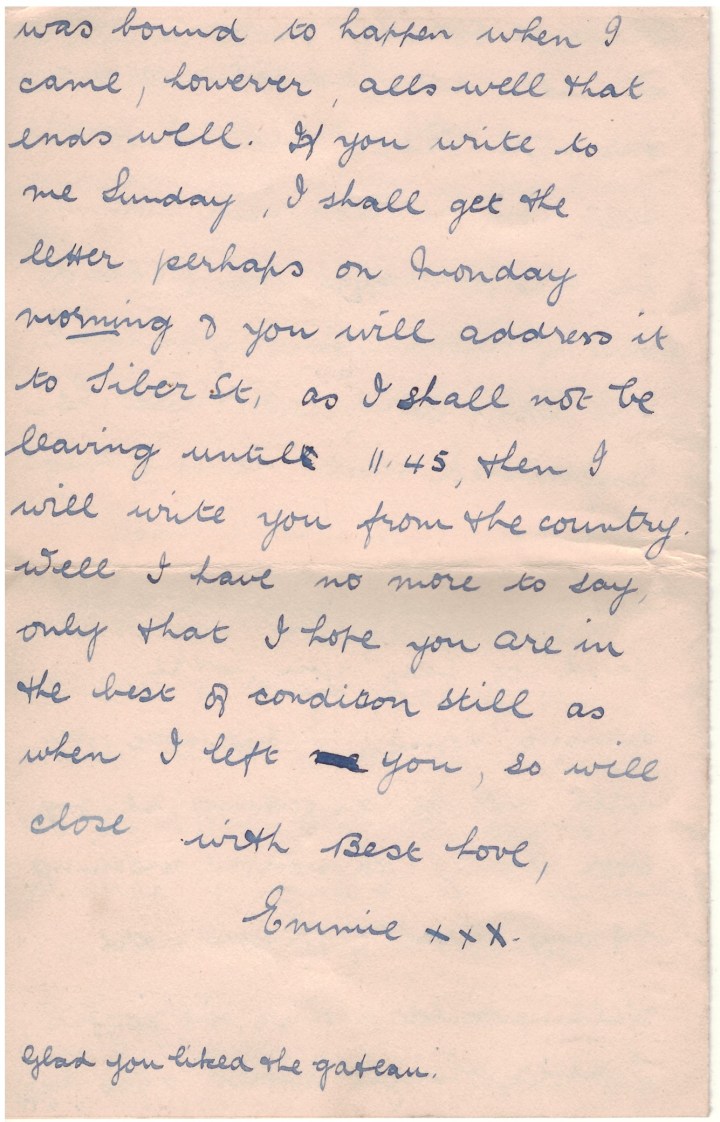 was bound to happen when I
came, however, alls well that
ends well. If you write to
me Sunday, I shall get the
letter perhaps on Monday
morning & you will address it
to Siber St, as I shall not be
leaving until 11.45, then I
will write you from the country.
Well I have no more to say,
only that I hope you are in
the best of condition still as
when I left you, so will
close with Best Love,
Emmie xxx.
Glad you liked the gateau.